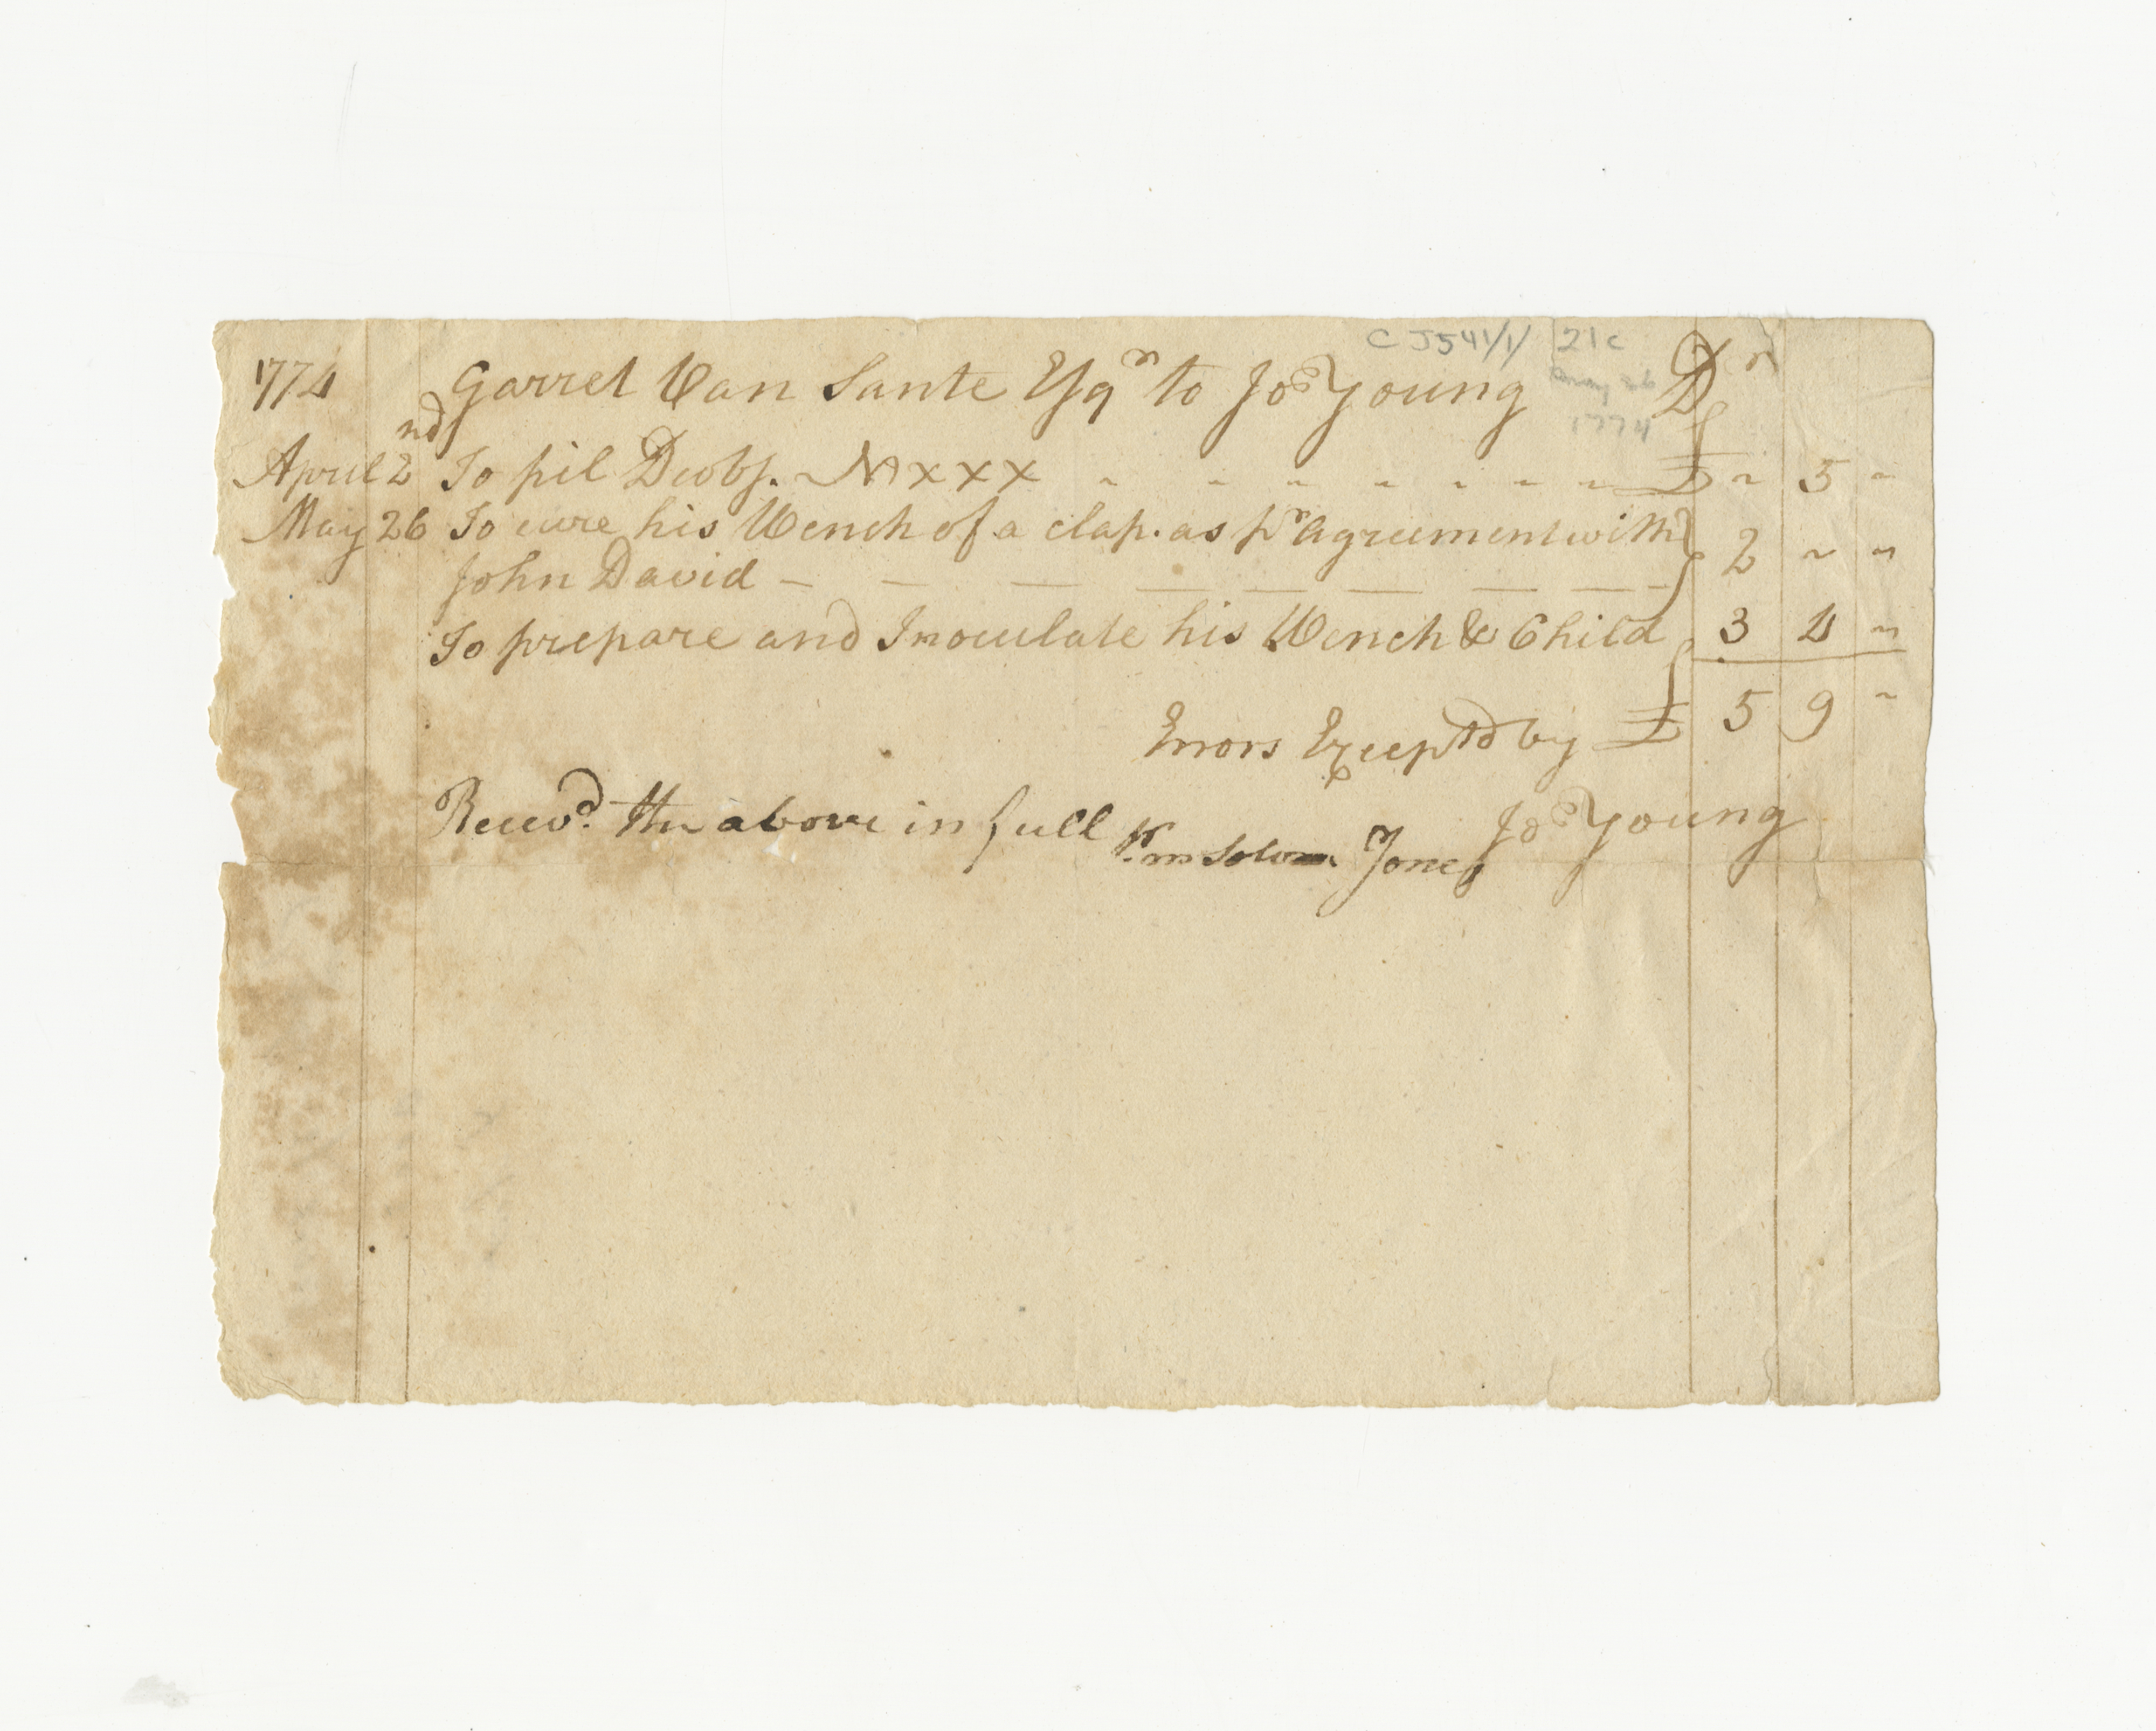 C J541/1/ 21c
May 26
1774
1774 Garret Van Sante Esqr to Jos Young Dr
April 2nd To pil Deobs. No xxx £ ~ 5 ~
May 26 To cure his Wench of a clap. as pr agreement with
John David 2 ~ ~
To prepare and Inoculate his Wench & Child 3 4 ~
Errors Exceptd by £ 5 9 ~
Jos Young
Receivd. the above in full Pr me Jones